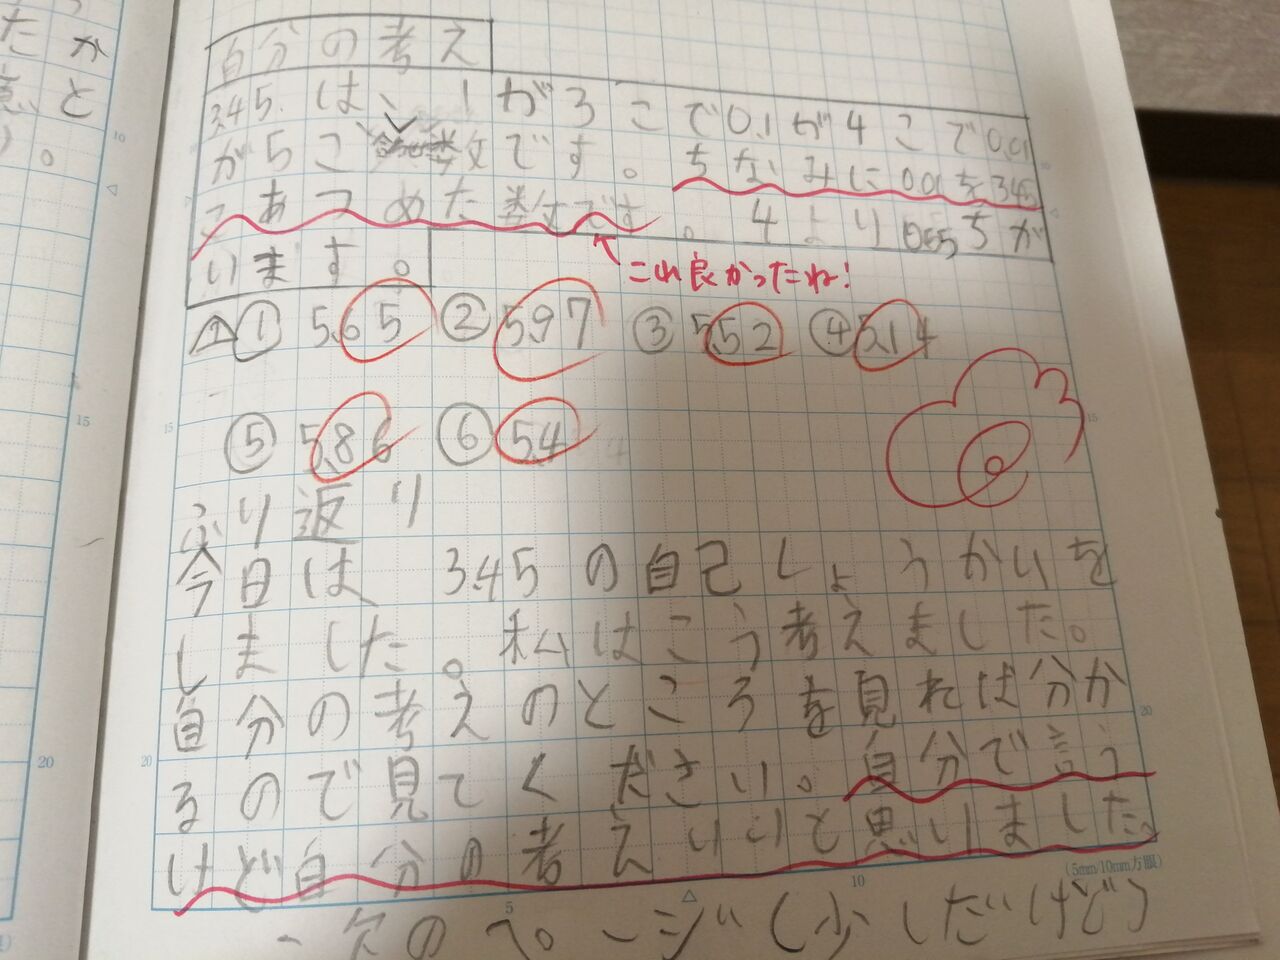 自分の考え
3.45.は、1がろこで0.1が4こで0.01
が5こ 数です。ちなみに0.01を345
こあつめた数です。4より0.55ちが
います。
これ良かったね!
① 5.65 ② 5.97 ③ 5.52 ④ 5.14
⑤ 5.86 ⑥ 5.4
ふり返り
今日は 3.45の自己しょうかいを
しました。私はこう考えました。
自分の考えのところを見れば分か
るので見てください。自分で言う
けど自分の考えいいと思いました。
(5mm/10mm方眼)
次のページ(少しだけど)
10
15
20
15
20
15
20
5
10
たか
と
。